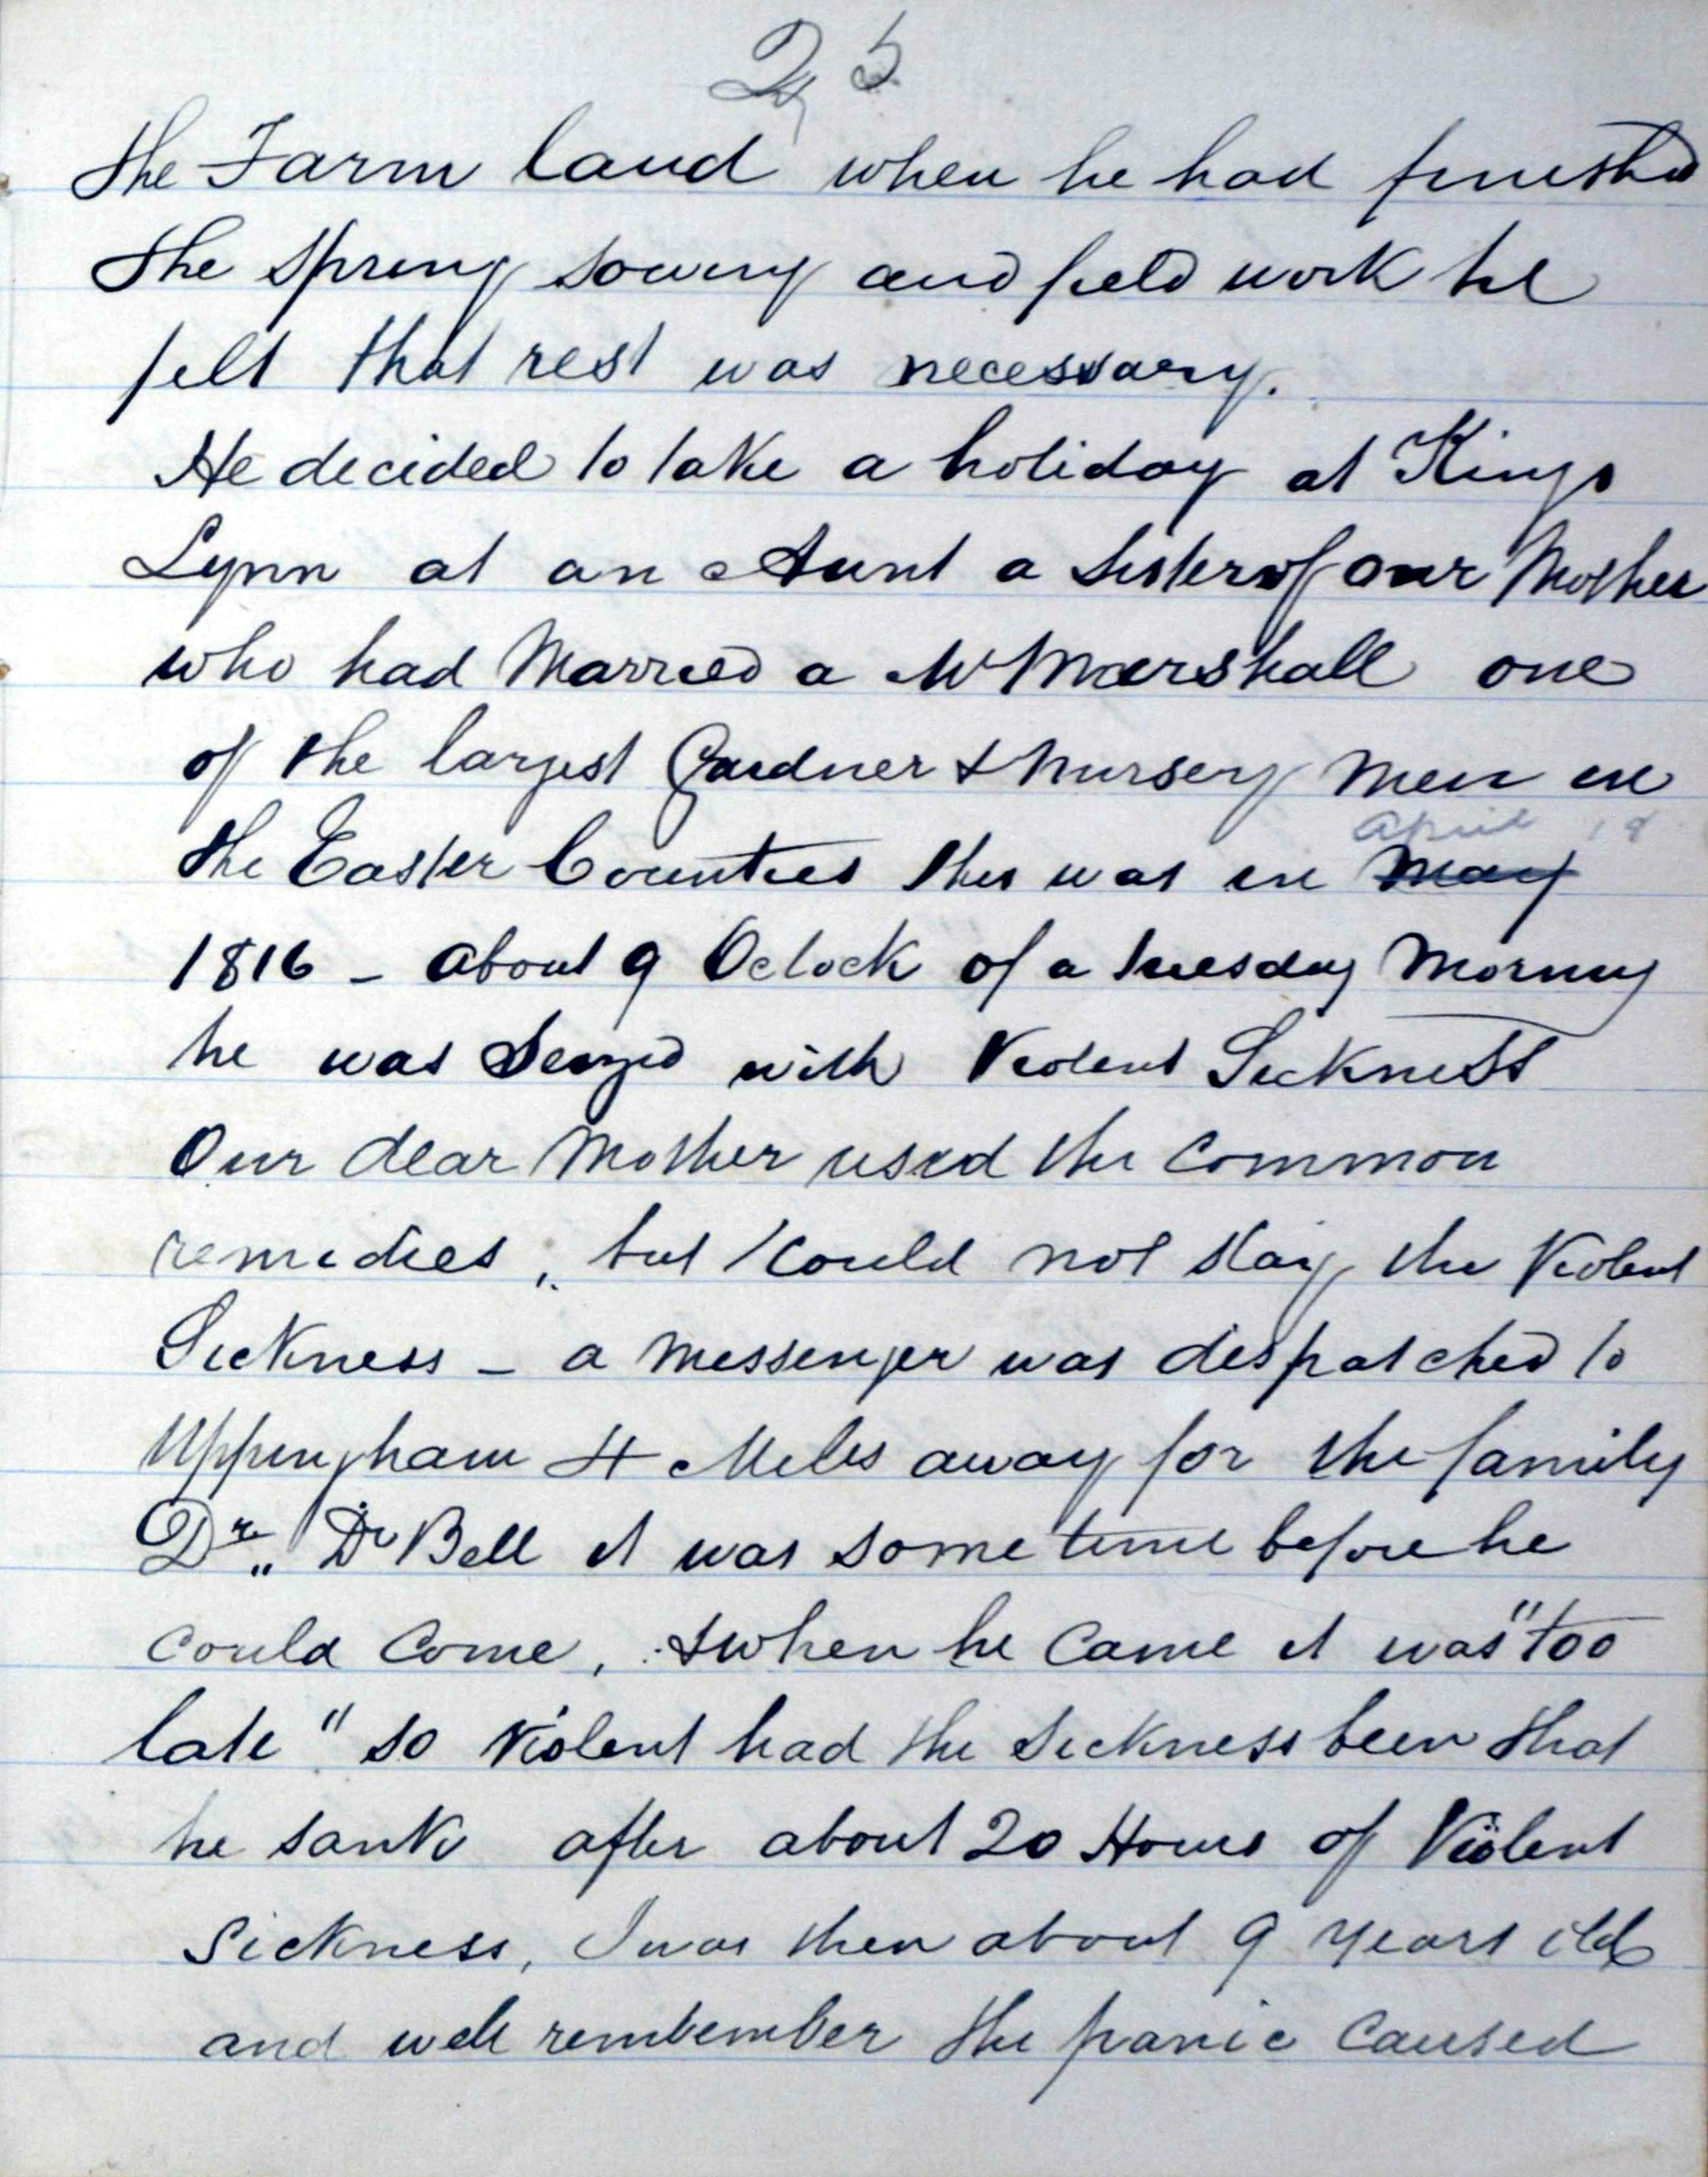 25
the Farm land when he had finished
the spring sowing and field work he
felt that rest was necessary.
He decided to take a holiday at Kings
Lynn at an Aunt a sister of our Mother
who had Married a Mr Marshall one
of the largest Gardner & Nursery Men in
the Easter Counties this was in May
April 18
1816 - about 9 Oclock of a tuesday Morning
he was Seized with Violent Sickness
Our dear Mother used the common
remedies, but could not stay the Violent
Sickness - a Messenger was despatched to
Uppingham 4 Miles away for the family
Dr,, Dr Bell it was some time before he
could come, & when he came it was "too
late" so violent had the sickness been that
he sank after about 20 Hours of Violent
sickness, I was then about 9 years old
and well rembember the panic caused